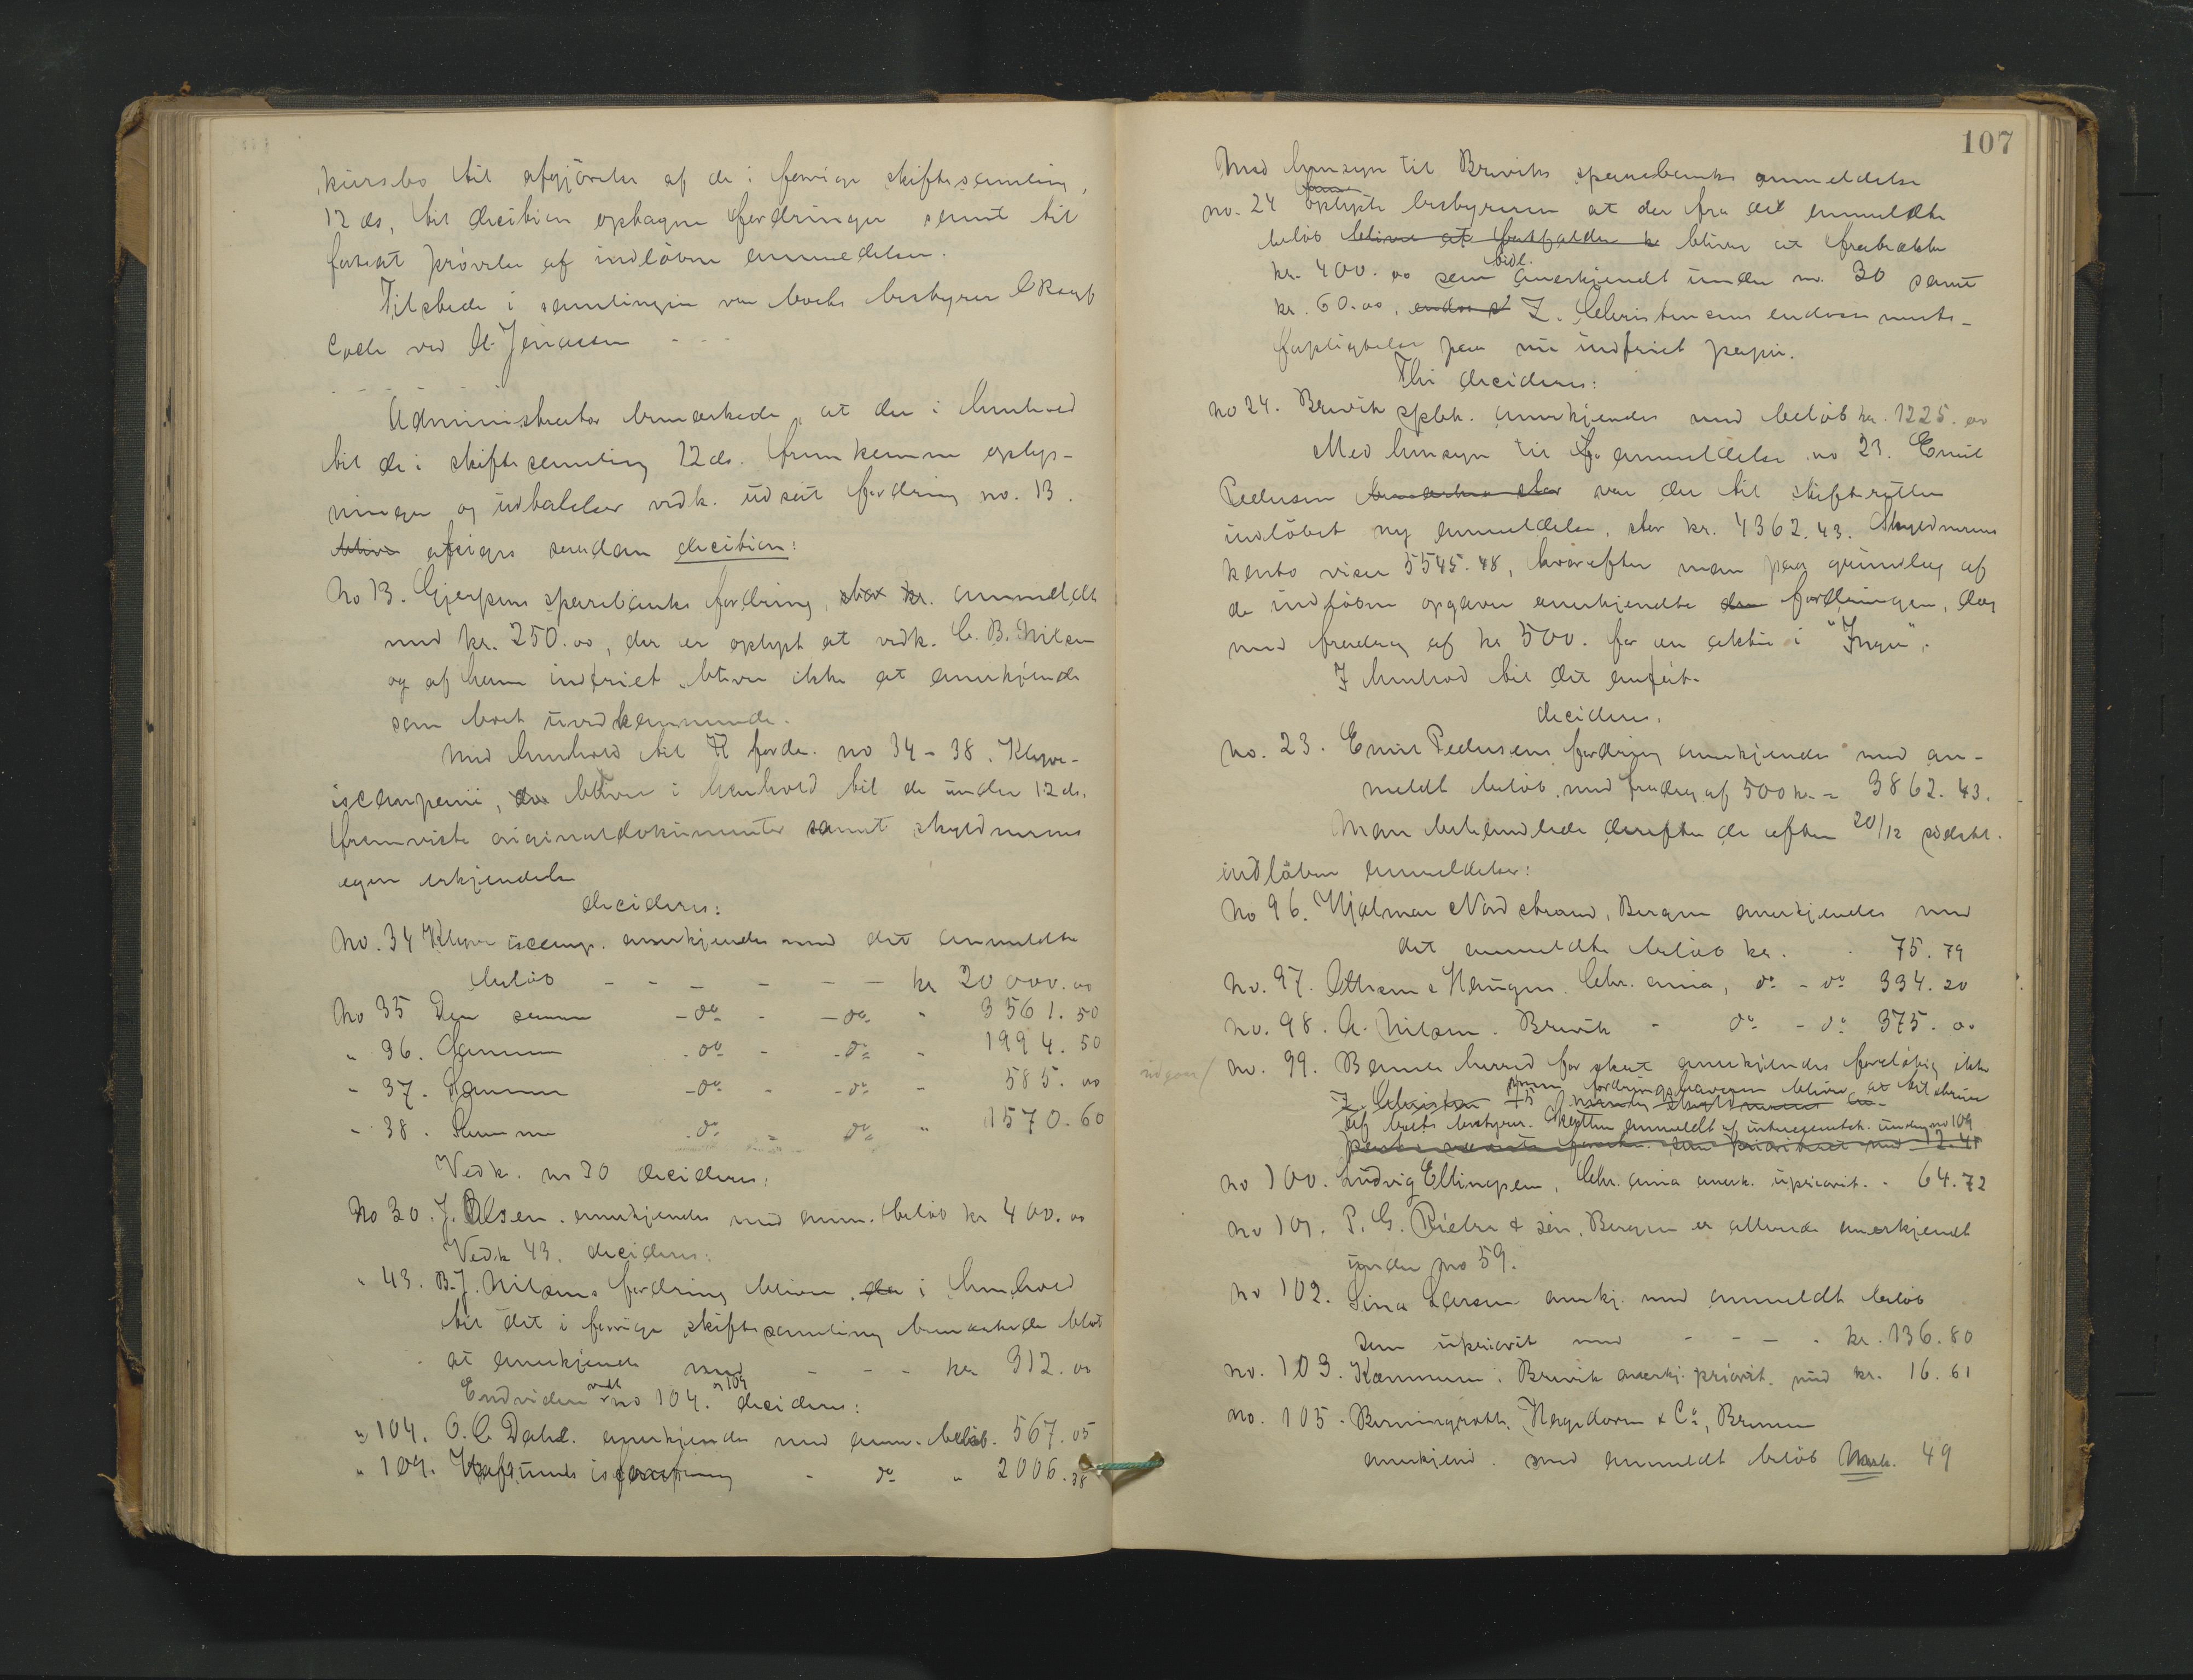 kursbo til afgjörelse af de i forrige skiftesamling,
12 ds, til decition optagne fordringer samt til
fortsat prövelse af indløbne anmeldelser.
Tilstede i samlingen var boets bestyrer
ved Jenssen - - -
Administrator bemærkede, at der i henhold
til de i skiftesamling 12 ds. fremkomne oplys-
ninger og udtalelser vedk. udsat fordring no. 13.
bliver afsiges saadan decition:
No 13. Gjerpens sparebanks fordring, stor kr. anmeldt
med kr. 250.00, der er oplyst at vedk. C. B. Nilsen
og af ham indfriet, bliver ikke at anerkjende
som boet uvedkommende.
Med henhold til fordr. no 34-38. Klyve-
iscompani, bliver i henhold til de under 12 ds.
fremviste originaldokumenter samt skyldnerens
egen erkjendelse
decideres:
No. 34 Klyve iscomp. anerkjendes med det anmeldte
beløb - - - - - - kr 20 000.00
No 35 Den samme - do - - do " 3561.50
" 36. Samme - do - - do - 1994.50
" 37. Samme - do - - do - 585.00
" 38. Samme do - do " 1570.60
Vedk. no 30 decideres:
No 30. J. Olsen. anerkjendes med anm. beløb kr 400.00
Vedk 43. decideres:
" 43. B. J. Nilsens fordring bliver, da i henhold
til det i forrige skiftesamling bemærkede blot
at anerkjende med - - - kr 312.00
Endvidere vedk no 104. og 109 decideres:
" 104. O. C. Dahl. anerkjendes med anm. beløb. 567.05
" 109. - do " 2006.38
107
Med hensyn til Breviks sparebanks anmeldelse
no. 24 oplyste bestyreren at der fra det anmeldte
beløb bliver at fratrække
kr. 400.00 som bidl. anerkjendt under no. 30 samt
kr. 60.00, Z. Christensens endossements-
forpligtelse paa nu indfriet papir.
Thi decideres:
no 24. Brevik spbk. anerkjendes med beløb kr. 1225.00
Med hensyn til anmeldelse no 23. Emil
Pedersen var der til skifteretten
indløbet ny anmeldelse, stor kr. 4362.43. Skyldnerens
konto viser 5545.48, hvorefter man paa grundlag af
de indløbne opgaver anerkjendte den fordringen, dog
med fradrag af kr 500. for en aktie i "Inga".
I henhold til det anførte
decideres.
No. 23. Emil Pedersens fordring anerkjendes med an-
meldt beløb, med fradrag af 500 kr = 3862.43.
Man behandlede derefter de efter 20/12 sidstl.
indløbne anmeldelser:
No 96. Hjalmar Nordstrand, Bergen anerkjendes med
det anmeldte beløb kr. . 75.79
No. 97. Haugen. Chr.ania, do - do 334.20
No. 98. A. Nilsen. Brevik - do - do 375.00
udgaar/ No. 99. Bamle herred for skat anerkjendes foreløbig ikke
men fordringshaveren bliver at tilskrive
af boets bestyrer. Skatten anmeldt af under no 109
no 100. Ludvig Ellingsen, Chr.ania anerk. uprioritt. - 64.72
no 101. P. G. Rieber & sön, Bergen er allerede anerkjendt
under no 59.
No 102. Sina Larsen anerkj. med anmeldt beløb
som uprioritt med - - - . kr. 136.80
no. 103. Kæmneren i Brevik anerkj. prioritt. med kr. 16.61
no. 105. Hagedorn & Co, Bremen
anerkjend. med anmeldt beløb Mark. 49